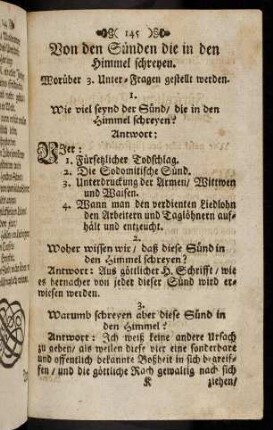 145
Von den Sünden die in den
Himmel schreyen.
Worüber 3. Unter-Fragen gestellt werden.
1.
Wie viel seynd der Sünd/ die in den
Himmel schreyen?
Antwort:
Vier:
1. Fürsetzlicher Todschlag.
2. Die Sodomitische Sünd.
3. Unterdruckung der Armen/ Wittwen
und Waisen.
4. Wann man den verdienten Liedlohn
den Arbeitern und Taglöhnern auf-
hält und entzeucht.
2.
Woher wissen wir/ daß diese Sünd in
den Himmel schreyen?
Antwort: Aus göttlicher H. Schrifft/ wie
es hernacher von jeder dieser Sünd wird er-
wiesen werden.
3.
Warumb schreyen aber diese Sünd in
den Himmel?
Antwort: Ich weiß keine andere Ursach
zu geben/ als weilen diese vier eine sonderbare
und offentlich bekannte Boßheit in sich begreif-
fen/ und die göttliche Rach gewaltig nach sich
K ziehen/